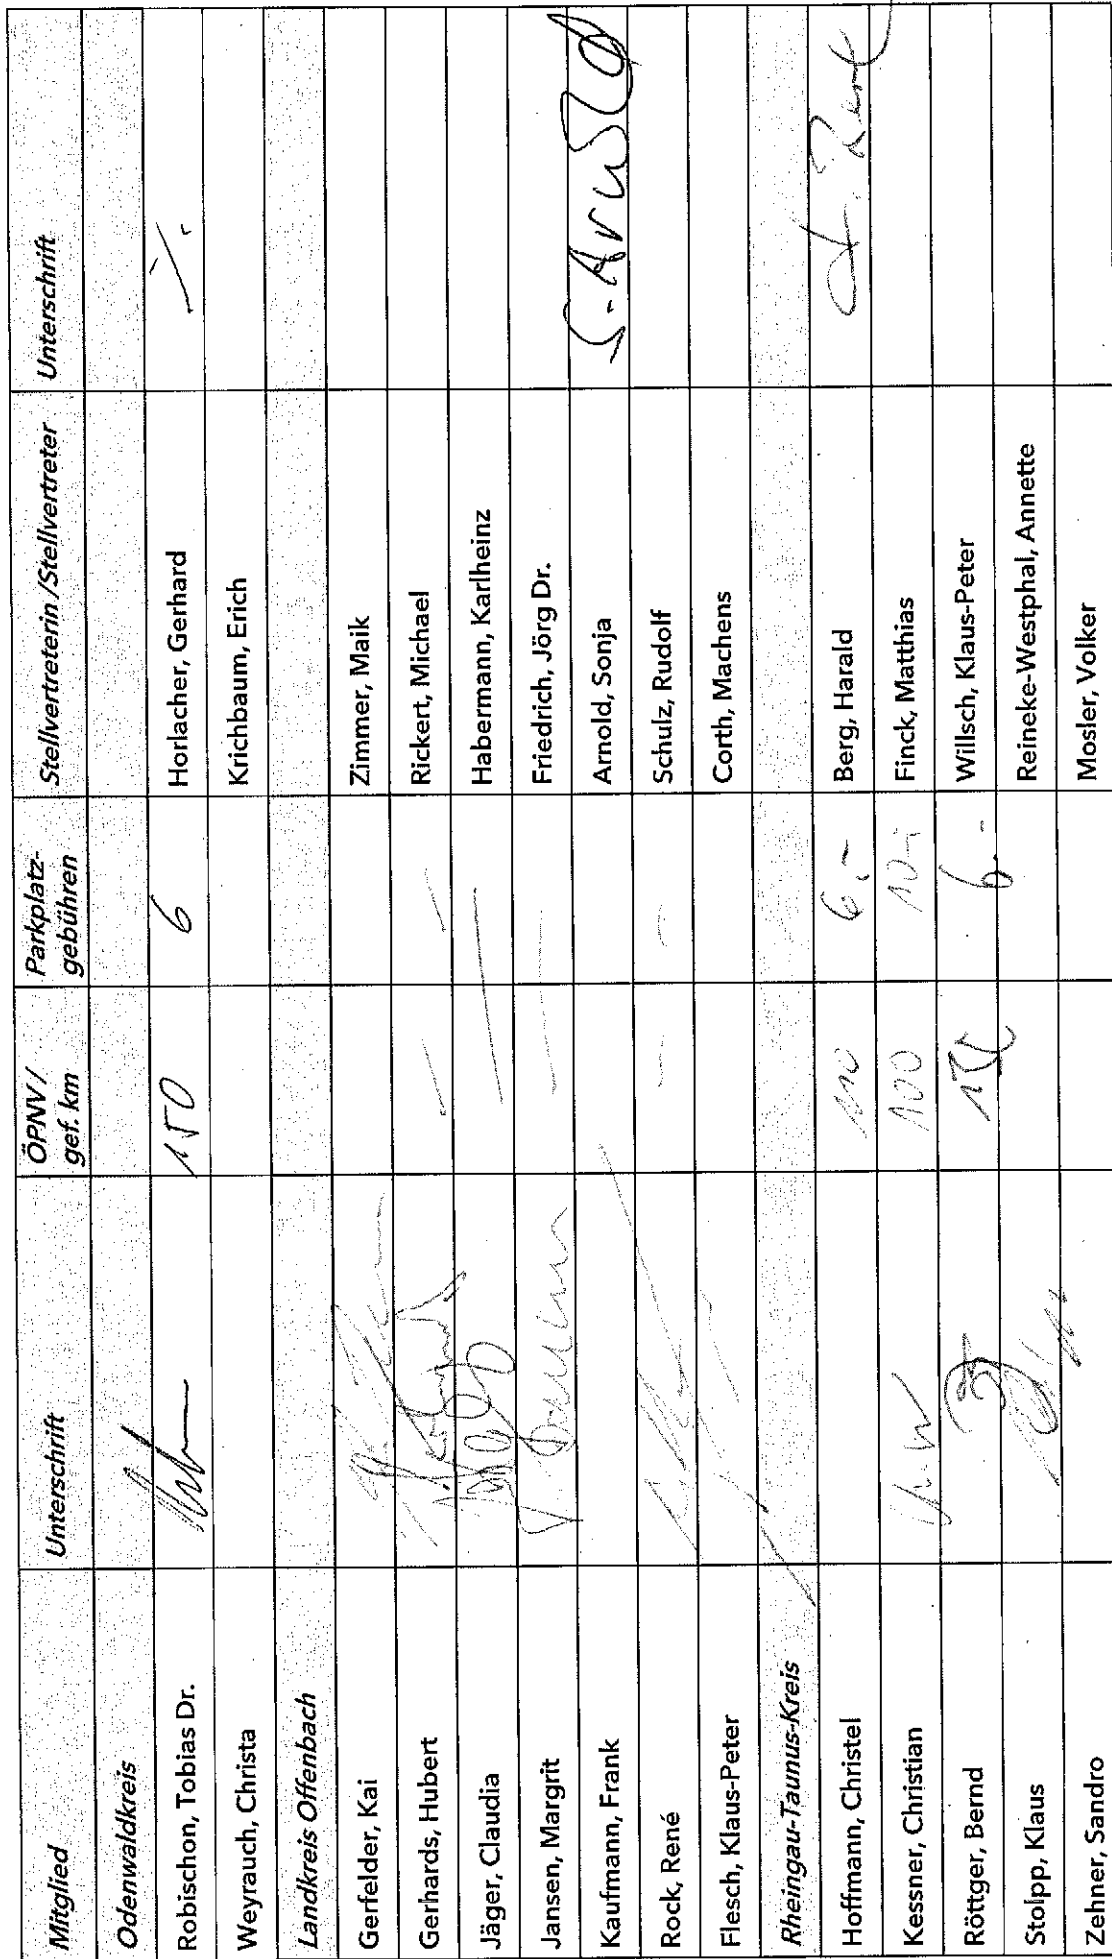 Mitglied Unterschrift ÖPNV / gef. km Parkplatz-gebühren Stellvertreterin /Stellvertreter Unterschrift
Odenwaldkreis
Robischon, Tobias Dr. 150 6 Horlacher, Gerhard
Weyrauch, Christa Krichbaum, Erich
Landkreis Offenbach
Gerfelder, Kai Zimmer, Maik
Gerhards, Hubert — — Rickert, Michael
Jäger, Claudia — — Habermann, Karlheinz
Jansen, Margrit — — Friedrich, Jörg Dr.
Kaufmann, Frank Arnold, Sonja S. Arnold
Rock, René — — Schulz, Rudolf
Flesch, Klaus-Peter Corth, Machens
Rheingau-Taunus-Kreis
Hoffmann, Christel 110 6,- Berg, Harald
Kessner, Christian 100 10,- Finck, Matthias
Röttger, Bernd 6 - Willsch, Klaus-Peter
Stolpp, Klaus Reineke-Westphal, Annette
Zehner, Sandro Mosler, Volker